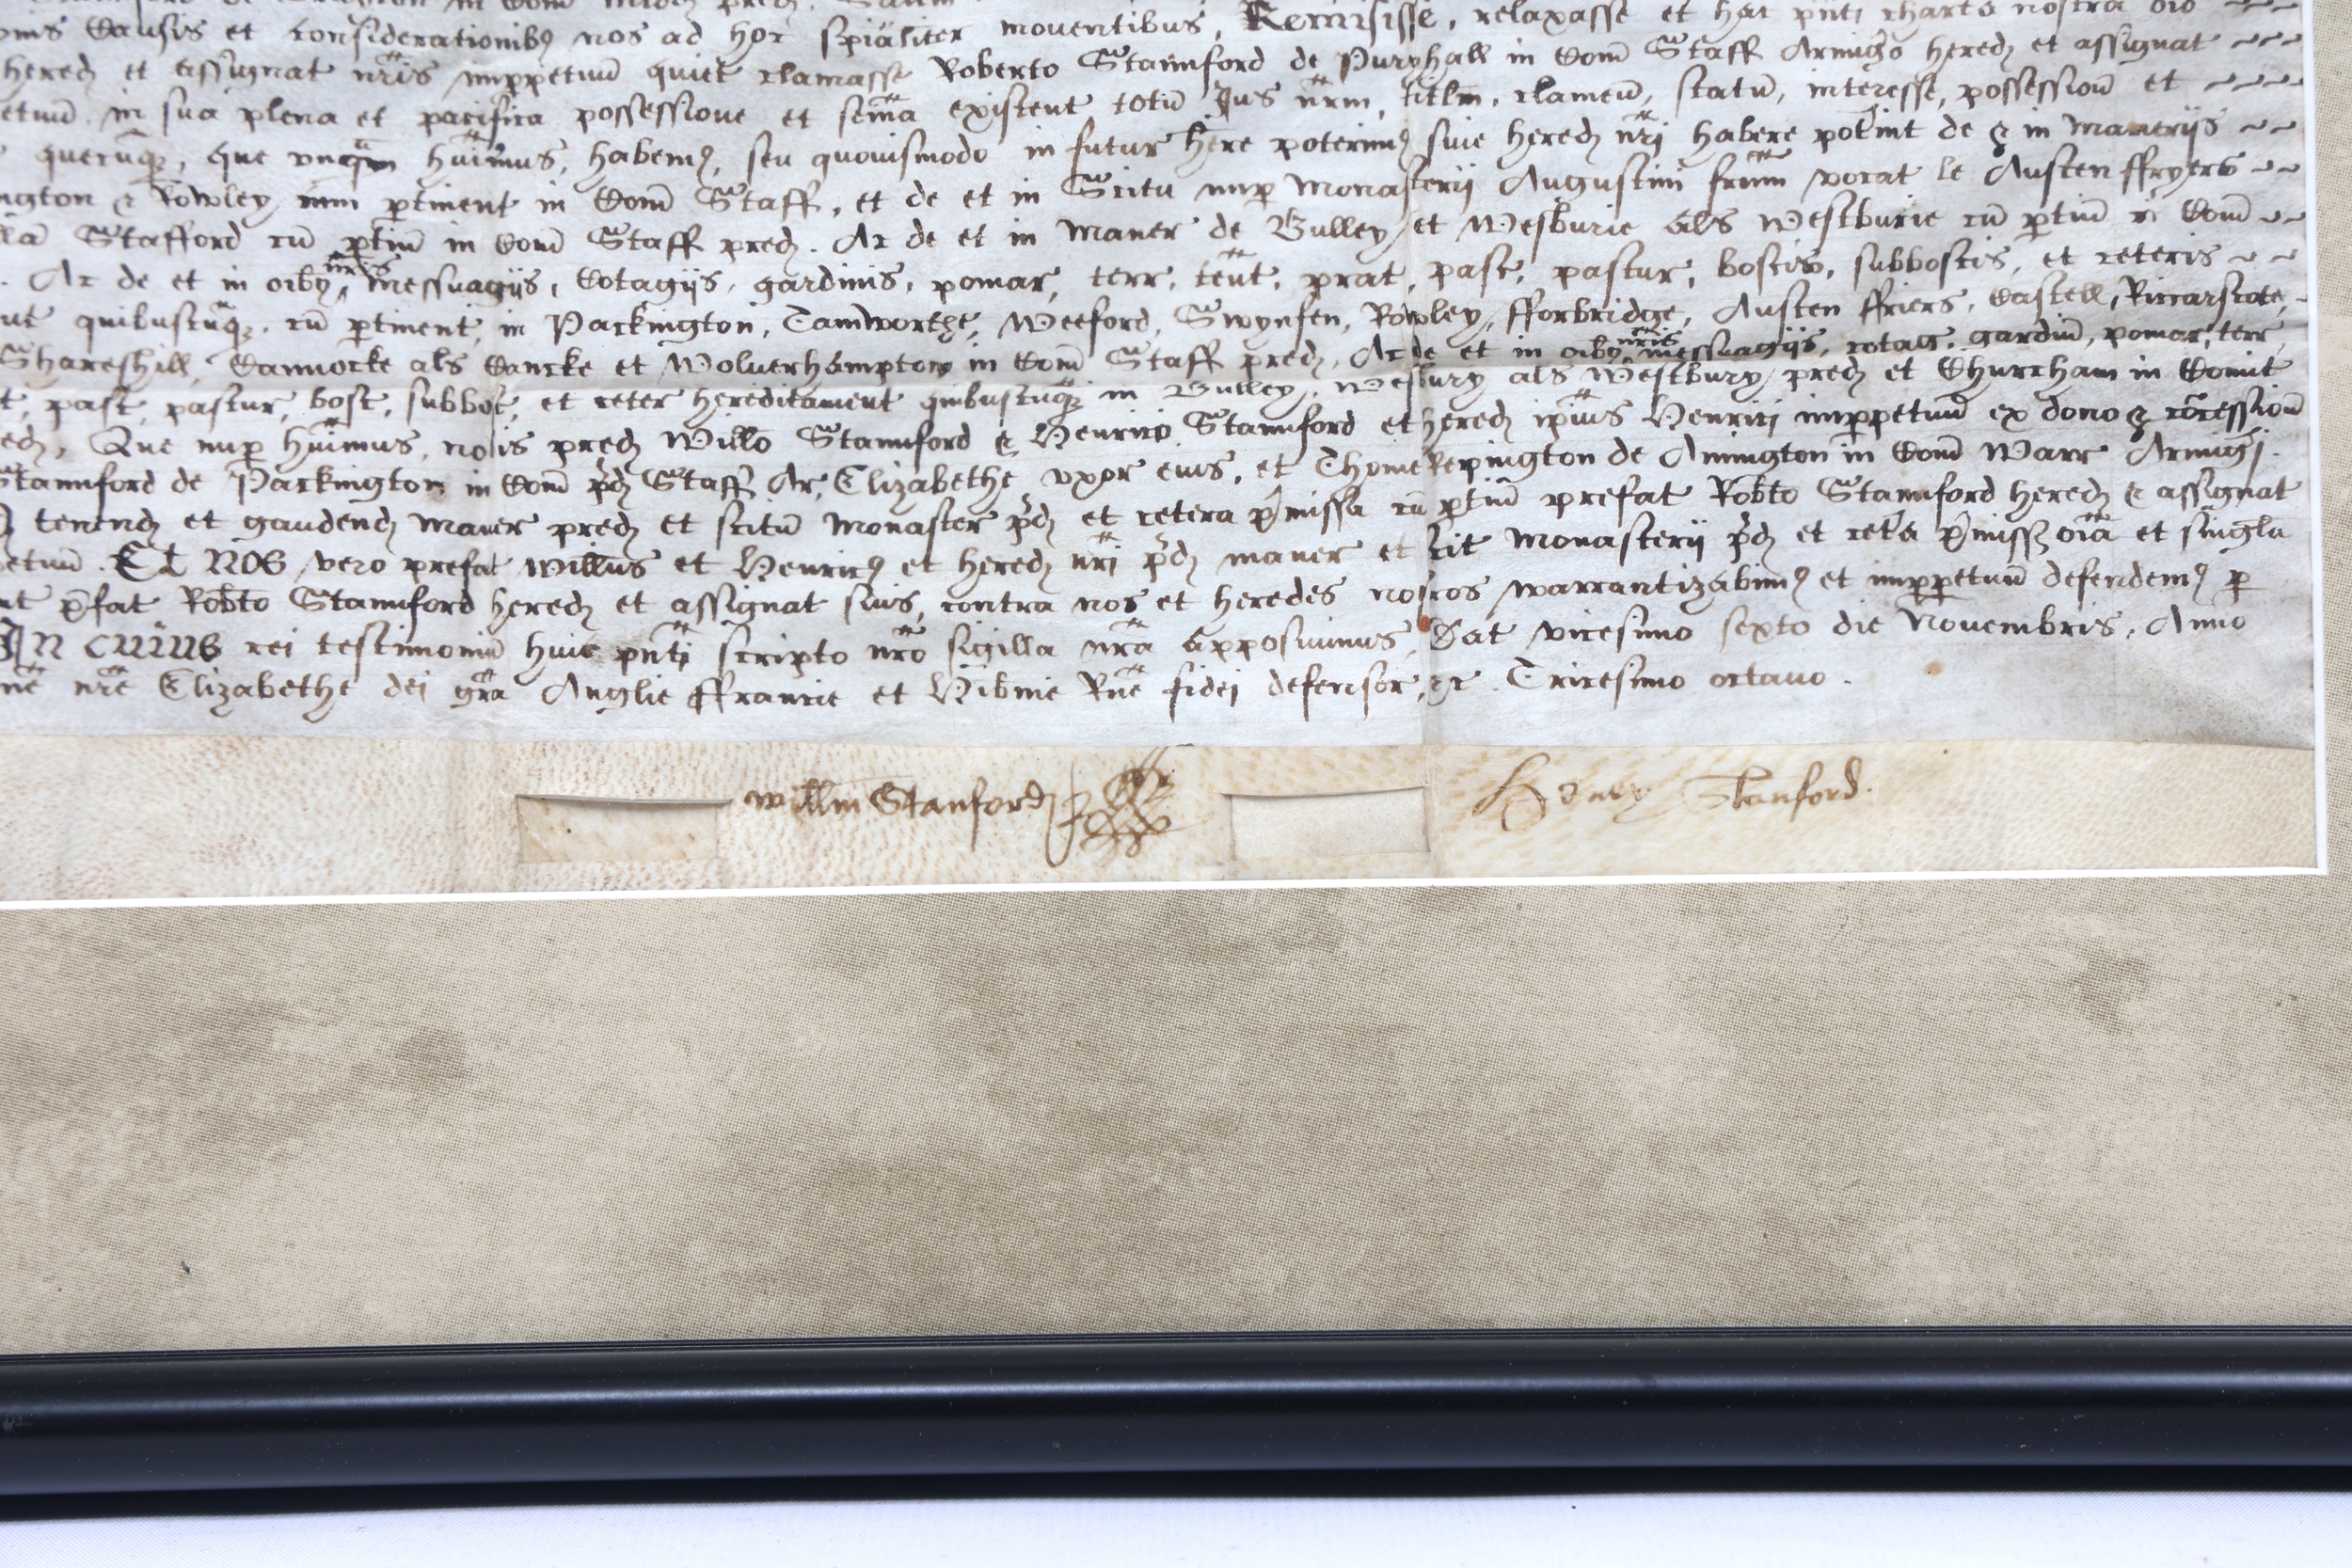 onis Causis et considerationibȝ nos ad hoc sp̄ialiter moventibus, Remisisse, relaxasse et hac pn̄ti charta nostra
hered et assignat nr̄is imp̱petuū quiet clamasse Roberto Stamford de Puryhall in Com̄ Staff Armig̃o hered et assignat
etuū in sua plena et pacifica possessione et seīa existent totū Jus nr̄m, titlm, clameū, statū, interesse, possessionū et
quecūqȝ, que unqͣm huim̄us, habemꝰ, seu quouismodo in futur hēre poterimꝰ siue hered nr̄i habere pot̃int de & in Manerijs
ngton & Rowley cum p̱tinent in Com̄ Staff, et de et in Scitu nup̱ Monasterij Augustini fr̄um vocat le Austen ffryers
Stafford cū p̱tiū in Com̄ Staff pred. Ac de et in Maner de Bulley et Wesburie als Westburie cū p̱tiū in Com̄
. Ac de et in oībȝ nr̄is messuagijs, Cotagijs, gardinis, pomar, terr, teūt, prat, past, pastur, boscis, subboscis, et ceteris
ut quibuscūqȝ, cū p̱tinent, in Packington, Tamworthe, Weeford, Swynfen, Rowley, fforbridge, Austen ffriers, Castell, Riccarscote,
Shareshill, Cannocke als Cancke et Wolverhampton in Com̄ Staff pred, Ac de et in oībȝ nr̄is messuagijs, cotag, gardiū, pomar, terr
t, past, pastur, bosc, subbosc, et ceter hereditament quibuscūqȝ in Bulley, Wesbury als Westbury pred et Churcham in Comit
ed, Que nup̱ huim̄us, nobis pred Willo Stamford & Henrico Stamford et hered ip̄ius Henrici imp̱petuū ex dono & concessionū
Stamford de Packington in Com̄ p̄d Staff Ar, Elizabethe uxor eius, et Thome Repington de Amington in Com̄ Warr Armig̃i.
tenend et gaudend Maner pred et scitū Monaster p̄d et cetera p̄missa cū p̱tiū prefat Rob̄to Stamford hered & assignat
etuū. Et Nos vero prefat Willus et Henricꝰ et hered nr̄i p̄d maner et scit Monasterij p̄d et cet̃a p̄miss oīa et singla
ut p̄fat Rob̄to Stamford hered et assignat suis, contra nos et heredes nostros warrantizabimꝰ et imp̱petuū defendemꝰ p̱
In cuius rei testimoniū huic pn̄ti scripto nr̄o sigilla nr̄a apposuimus. Dat vicesimo sexto die Novembris, Anno
nē nr̄e Elizabethe dei gr̄a Anglie ffrancie et Hib̄nie Rnē fidei defensor, &c. Tricesimo octavo.
Willm Stanford
Henry Stanford.